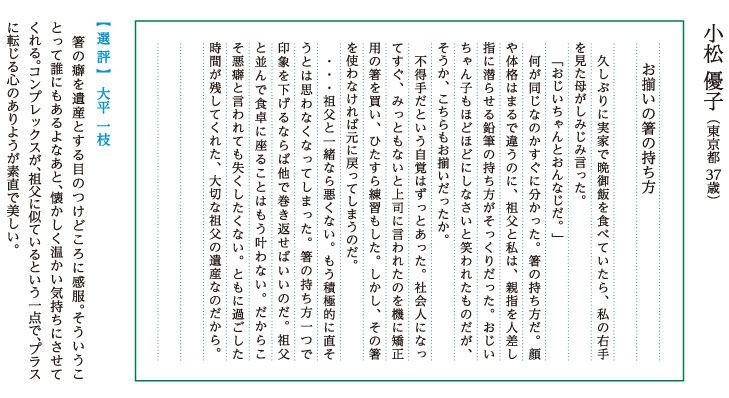 小松 優子（東京都 37歳）
お揃いの箸の持ち方
久しぶりに実家で晩御飯を食べていたら、私の右手
を見た母がしみじみ言った。
「おじいちゃんとおんなじだ。」
何が同じなのかすぐに分かった。箸の持ち方だ。顔
や体格はまるで違うのに、祖父と私は、親指を人差し
指に潜らせる鉛筆の持ち方がそっくりだった。おじい
ちゃん子もほどほどにしなさいと笑われたものだが、
そうか、こちらもお揃いだったか。
不得手だという自覚はずっとあった。社会人になっ
てすぐ、みっともないと上司に言われたのを機に矯正
用の箸を買い、ひたすら練習もした。しかし、その箸
を使わなければ元に戻ってしまうのだ。
・・・祖父と一緒なら悪くない。もう積極的に直そ
うとは思わなくなってしまった。箸の持ち方一つで
印象を下げるならば他で巻き返せばいいのだ。祖父
と並んで食卓に座ることはもう叶わない。だからこ
そ悪癖と言われても失くしたくない。ともに過ごした
時間が残してくれた、大切な祖父の遺産なのだから。
【選評】大平 一枝
箸の癖を遺産とする目のつけどころに感服。そういうこ
とって誰にもあるよなあと、懐かしく温かい気持ちにさせて
くれる。コンプレックスが、祖父に似ているという一点で、プラス
に転じる心のありようが素直で美しい。